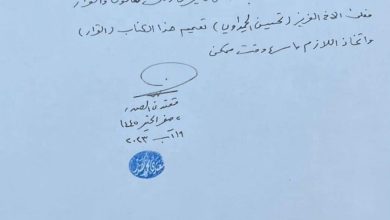 فعلى الاخ العزيز (تحسين الحميداوي) تعميم هذا الكتاب (القرار)
واتخاذ اللازم باسرع وقت ممكن
مقتدى الصدر
٢ صفر الخير ١٤٤٥
١٩ آب ٢٠٢٣